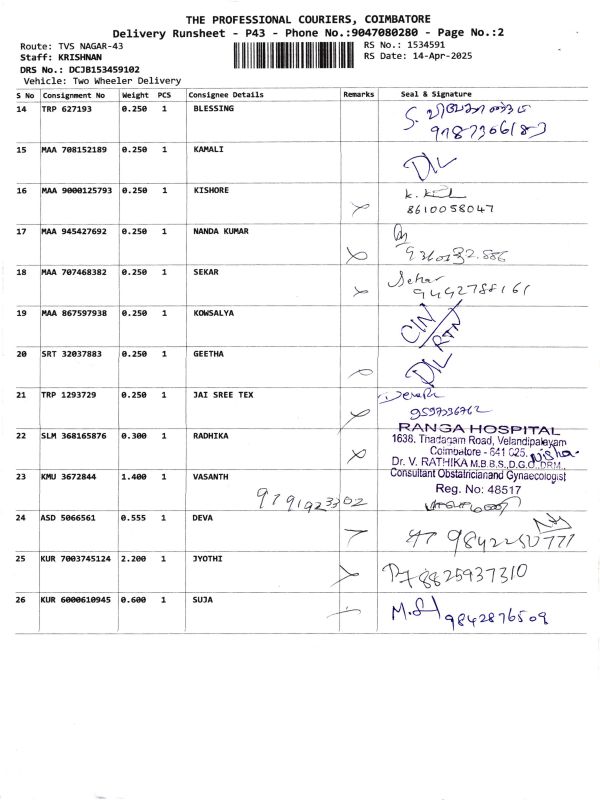 THE PROFESSIONAL COURIERS, COIMBATORE
Delivery Runsheet - P43 - Phone No.:9047080280 - Page No.:2
Route: TVS NAGAR-43 RS No.: 1534591
Staff: KRISHNAN RS Date: 14-Apr-2025
DRS No.: DCJB153459102
Vehicle: Two Wheeler Delivery
S No Consignment No Weight PCS Consignee Details Remarks Seal & Signature
14 TRP 627193 0.250 1 BLESSING
9187306183
15 MAA 708152189 0.250 1 KAMALI D/L
16 MAA 9000125793 0.250 1 KISHORE
8610058047
17 MAA 945427692 0.250 1 NANDA KUMAR
18 MAA 707468382 0.250 1 SEKAR Sekar
9492788161
19 MAA 867597938 0.250 1 KOWSALYA CIN
RTN
20 SRT 32037883 0.250 1 GEETHA D/L
21 TRP 1293729 0.250 1 JAI SREE TEX
9597936762
22 SLM 368165876 0.300 1 RADHIKA
RANGA HOSPITAL
1638, Thadagam Road, Velandipalayam
Coimbatore - 641 025. Nisha
Dr. V. RATHIKA M.B.B.S.,D.G.O.,DRM.,
Consultant Obstatricianand Gynaecologist
Reg. No: 48517
23 KMU 3672844 1.400 1 VASANTH
9791923302
24 ASD 5066561 0.555 1 DEVA
9842250777
25 KUR 7003745124 2.200 1 JYOTHI
8825937310
26 KUR 6000610945 0.600 1 SUJA
9842876509